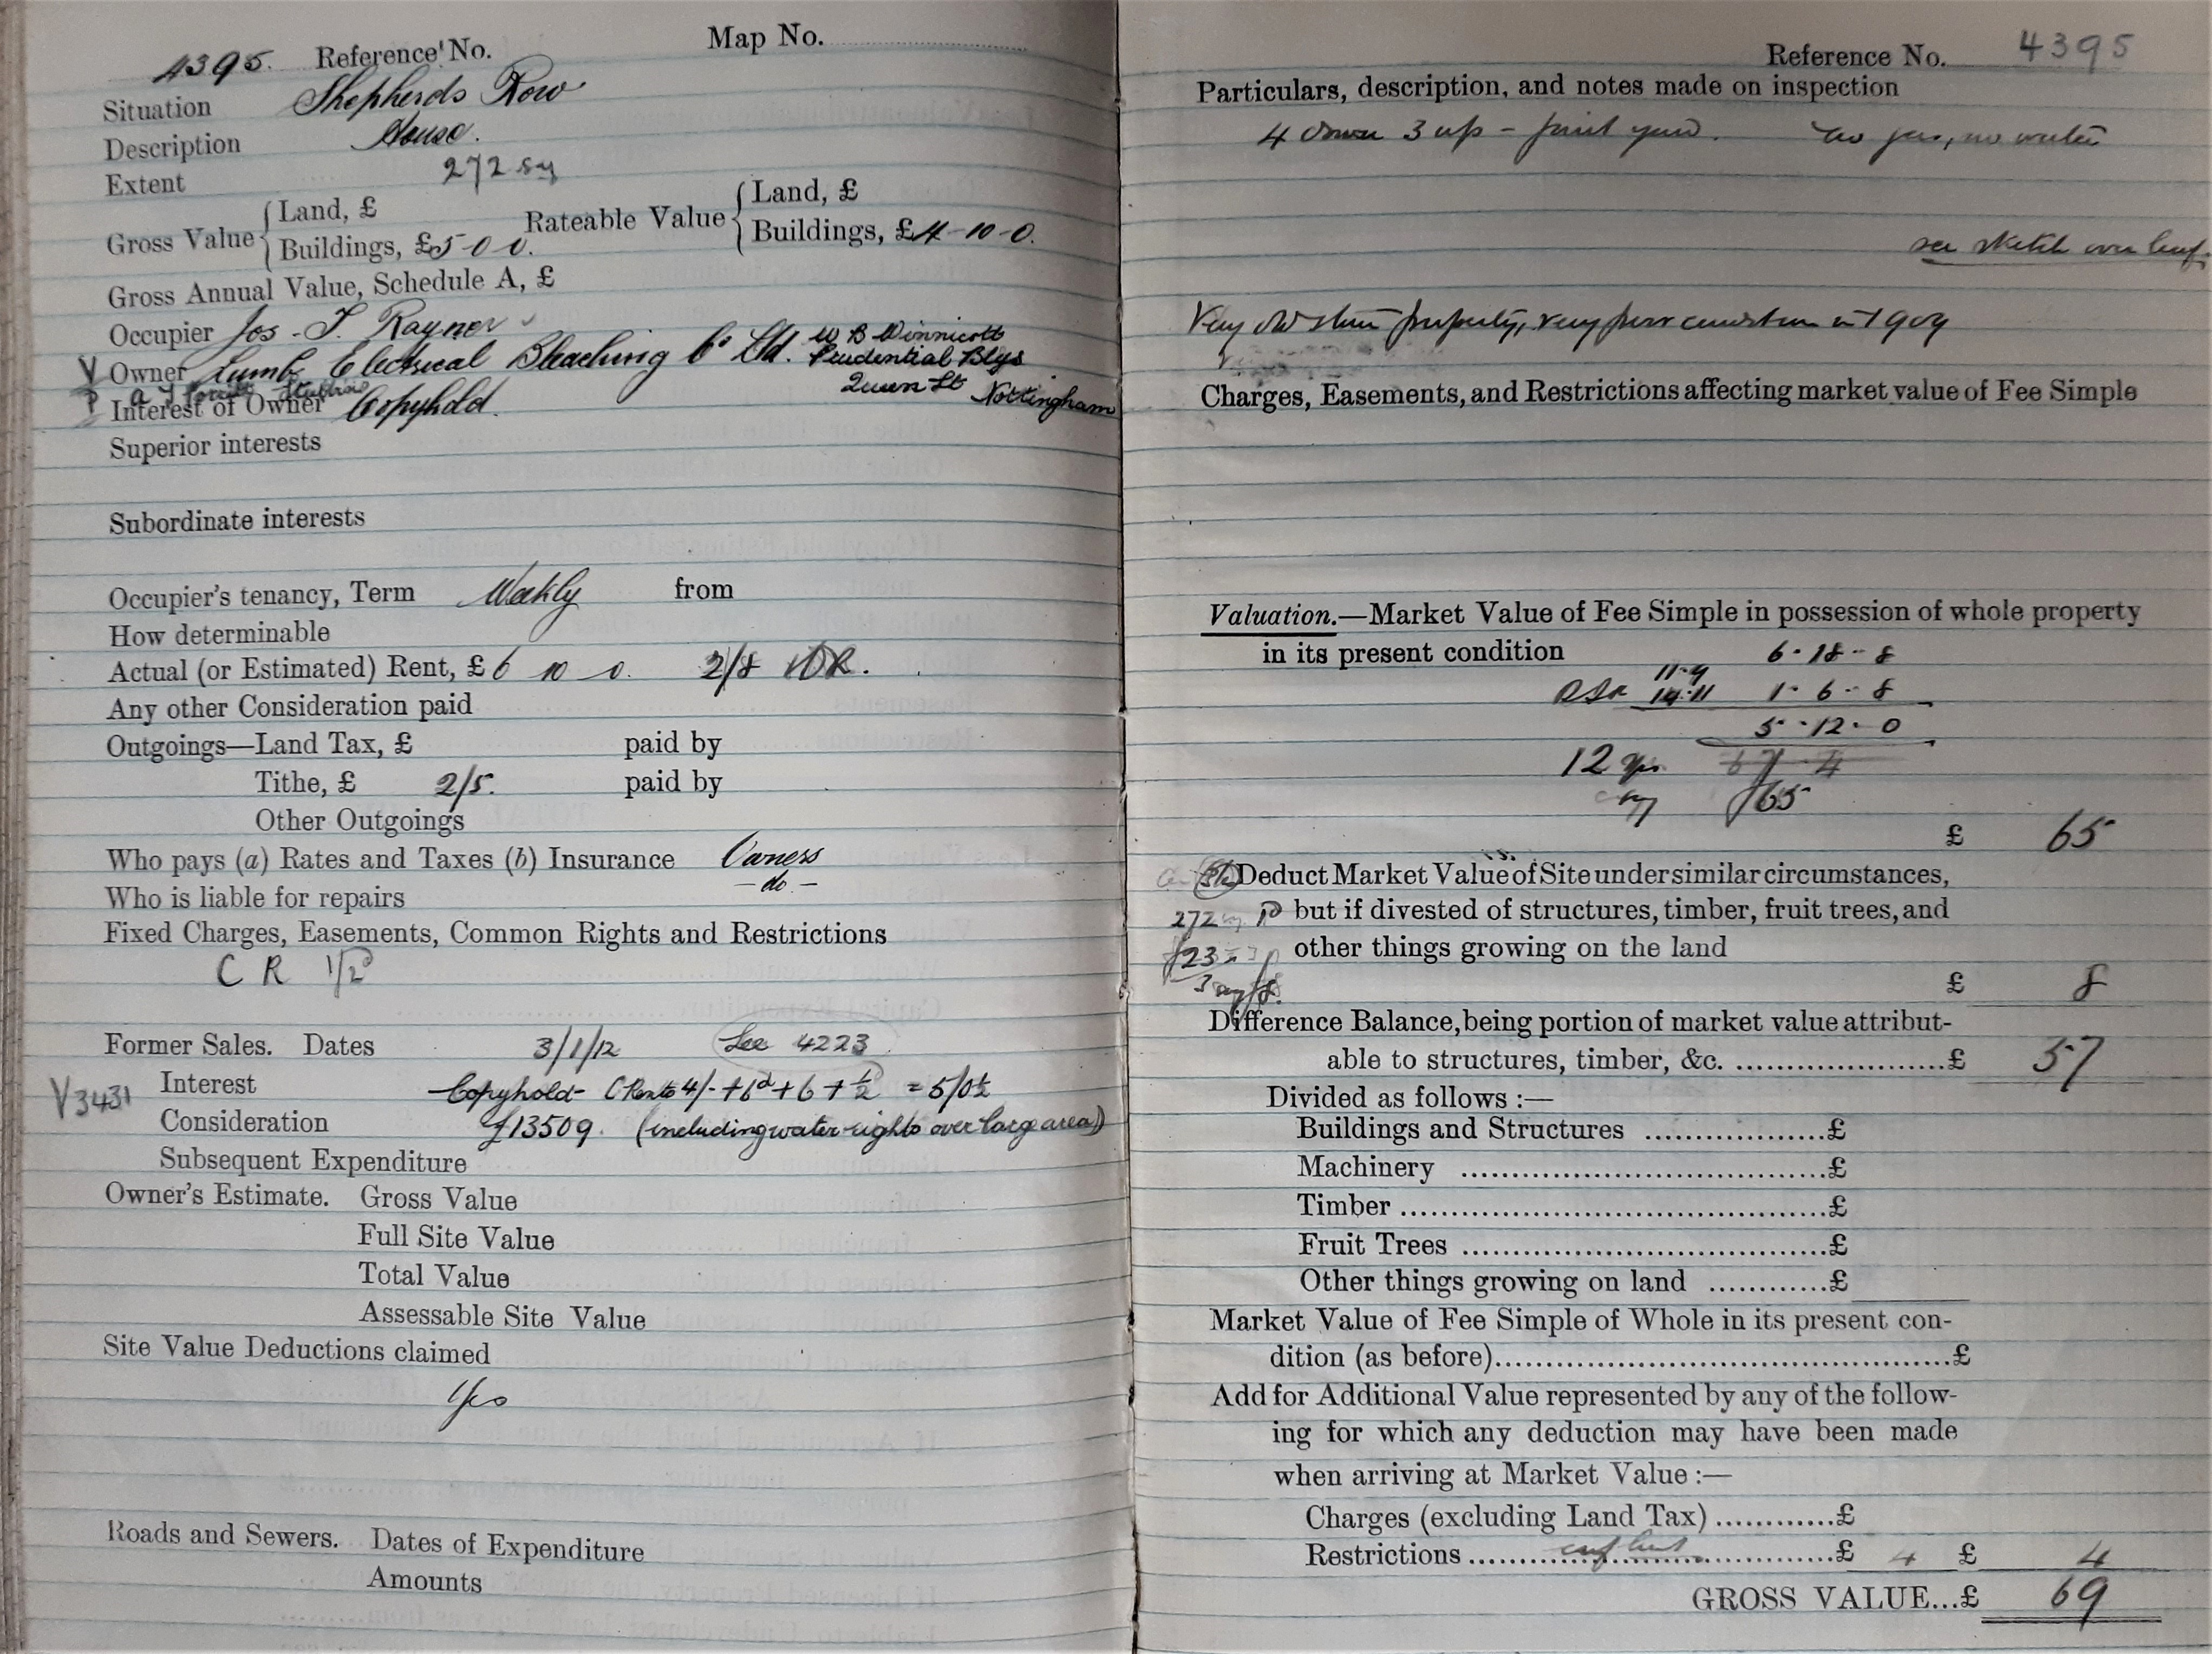 4395. Reference No. Map No.
Situation Shepherds Row
Description House.
Extent 272 sy
Gross Value { Land, £
Buildings, £5-0-0. Rateable Value { Land, £
Buildings, £4-10-0.
Gross Annual Value, Schedule A, £
Occupier Jos. T. Rayner
V Owner Lumb Electrical Bleaching Co Ltd. W B Winnicott
Prudential Blgs
Queen St Nottingham
Interest of Owner Copyhold.
Superior interests
Subordinate interests
Occupier's tenancy, Term Weekly from
How determinable
Actual (or Estimated) Rent, £6 10 0. 2/8
Any other Consideration paid
Outgoings—Land Tax, £ paid by
Tithe, £ 2/5. paid by
Other Outgoings
Who pays (a) Rates and Taxes (b) Insurance Owners
Who is liable for repairs — do. —
Fixed Charges, Easements, Common Rights and Restrictions
C R 1/2d
Former Sales. Dates 3/1/12 See 4223
V3431 Interest Copyhold - C Rents 4/- + 6d + 6 + ½ = 5/0½
Consideration £13509. (including water rights over large area)
Subsequent Expenditure
Owner's Estimate. Gross Value
Full Site Value
Total Value
Assessable Site Value
Site Value Deductions claimed
Yes
Roads and Sewers. Dates of Expenditure
Amounts
Reference No. 4395
Particulars, description, and notes made on inspection
4 down 3 up - joint yard. no gas, no water
see sketch over leaf.
Very old stone property, very poor condition in 1909
Charges, Easements, and Restrictions affecting market value of Fee Simple
Valuation.—Market Value of Fee Simple in possession of whole property
in its present condition 6-18-8
11-9
14-11 1-6-8
5-12-0
12 yrs 67 4
say £65
£ 65
Deduct Market Value of Site under similar circumstances,
272 but if divested of structures, timber, fruit trees, and
£23 other things growing on the land
3 say £8.
£ 8
Difference Balance, being portion of market value attribut-
able to structures, timber, &c. £ 57
Divided as follows :—
Buildings and Structures £
Machinery £
Timber £
Fruit Trees £
Other things growing on land £
Market Value of Fee Simple of Whole in its present con-
dition (as before) £
Add for Additional Value represented by any of the follow-
ing for which any deduction may have been made
when arriving at Market Value :—
Charges (excluding Land Tax) £
Restrictions £ 4 £ 4
GROSS VALUE...£ 69